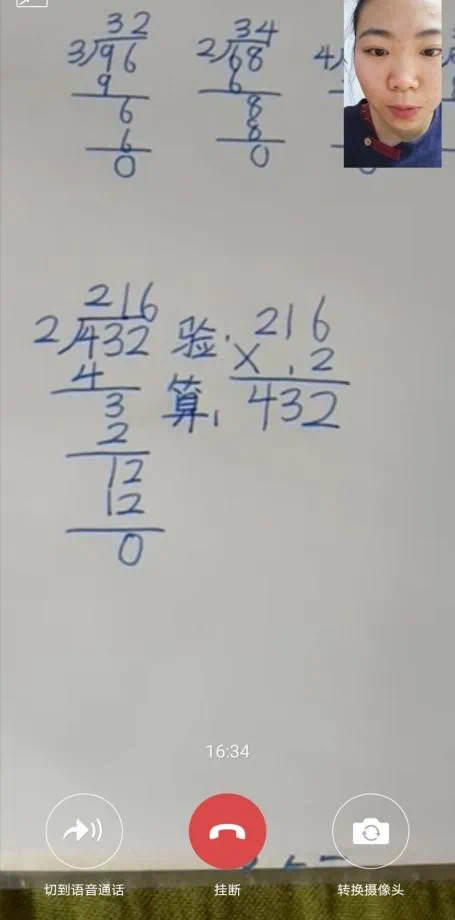 32
3)96
9
6
6
0
34
2)68
6
8
8
0
4
216
2)432
4
3
2
12
12
0
验算:
216
× 2
432
16:34
切到语音通话
挂断
转换摄像头